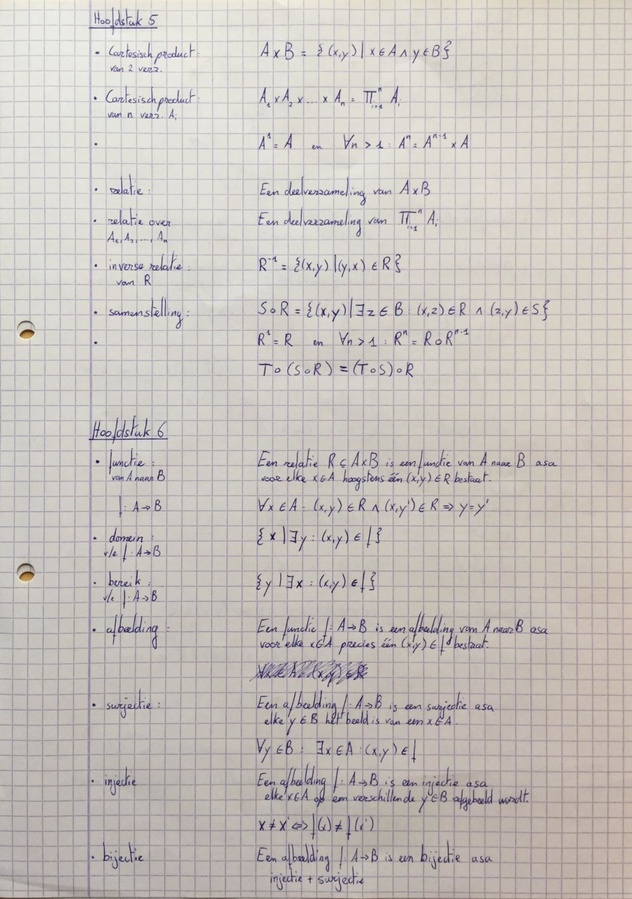 Hoofdstuk 5
• Cartesisch product: A x B = {(x,y) | x ∈ A ∧ y ∈ B}
van 2 verz.
• Cartesisch product: A₁ x A₂ x ... x Aₙ = ∏ᵢ₌₁ⁿ Aᵢ
van n verz. Aᵢ
• A¹ = A en ∀n > 1 : Aⁿ = Aⁿ⁻¹ x A
• relatie: Een deelverzameling van A x B
• relatie over Een deelverzameling van ∏ᵢ₌₁ⁿ Aᵢ
A₁, A₂, ..., Aₙ
• inverse relatie: R⁻¹ = {(x,y) | (y,x) ∈ R}
van R
• samenstelling: S∘R = {(x,y) | ∃z ∈ B : (x,z) ∈ R ∧ (z,y) ∈ S}
• R¹ = R en ∀n > 1 : Rⁿ = R∘Rⁿ⁻¹
T∘(S∘R) = (T∘S)∘R
Hoofdstuk 6
• functie: Een relatie R ⊆ A x B is een functie van A naar B asa
van A naar B voor elke x ∈ A hoogstens één (x,y) ∈ R bestaat.
f: A → B ∀x ∈ A : (x,y) ∈ R ∧ (x,y') ∈ R ⇒ y = y'
• domein: {x | ∃y : (x,y) ∈ f}
v/e f: A → B
• bereik: {y | ∃x : (x,y) ∈ f}
v/e f: A → B
• afbeelding: Een functie f: A → B is een afbeelding van A naar B asa
voor elke x ∈ A precies één (x,y) ∈ f bestaat.
• surjectie: Een afbeelding f: A → B is een surjectie asa
elke y ∈ B het beeld is van een x ∈ A.
∀y ∈ B : ∃x ∈ A : (x,y) ∈ f
• injectie Een afbeelding f: A → B is een injectie asa
elke x ∈ A op een verschillende y ∈ B afgebeeld wordt.
x ≠ x' ⇔ f(x) ≠ f(x')
• bijectie Een afbeelding f: A → B is een bijectie asa
injectie + surjectie